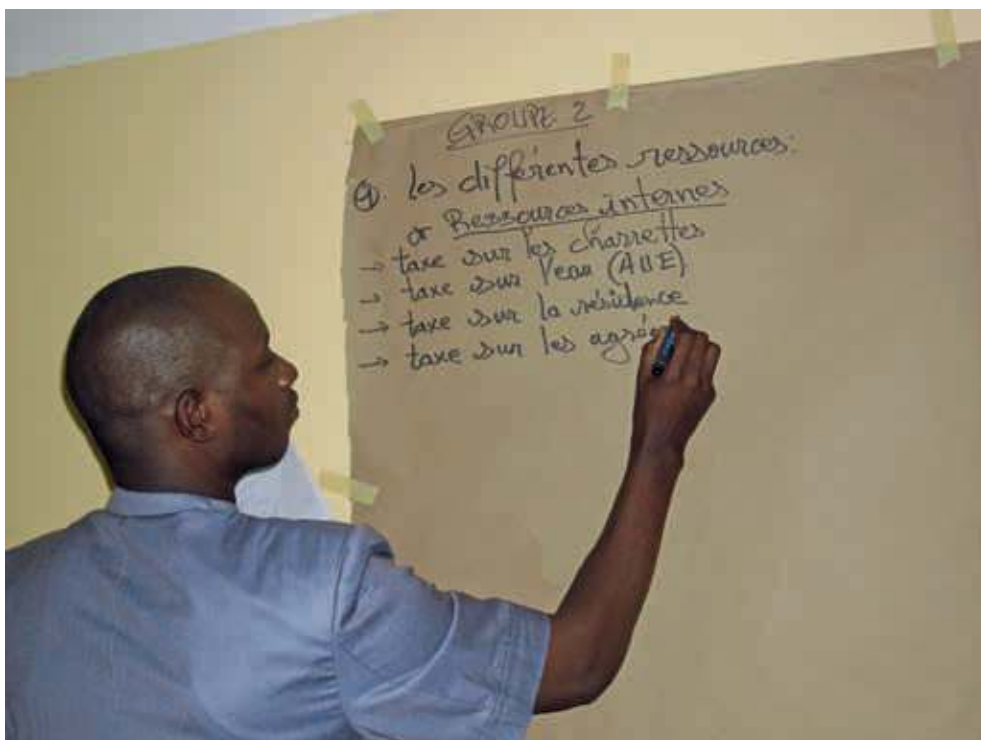 GROUPE 2
① les différentes ressources:
a Ressources internes
→ taxe sur les charrettes
→ taxe sur l'eau (AUE)
→ taxe sur la résidence
→ taxe sur les